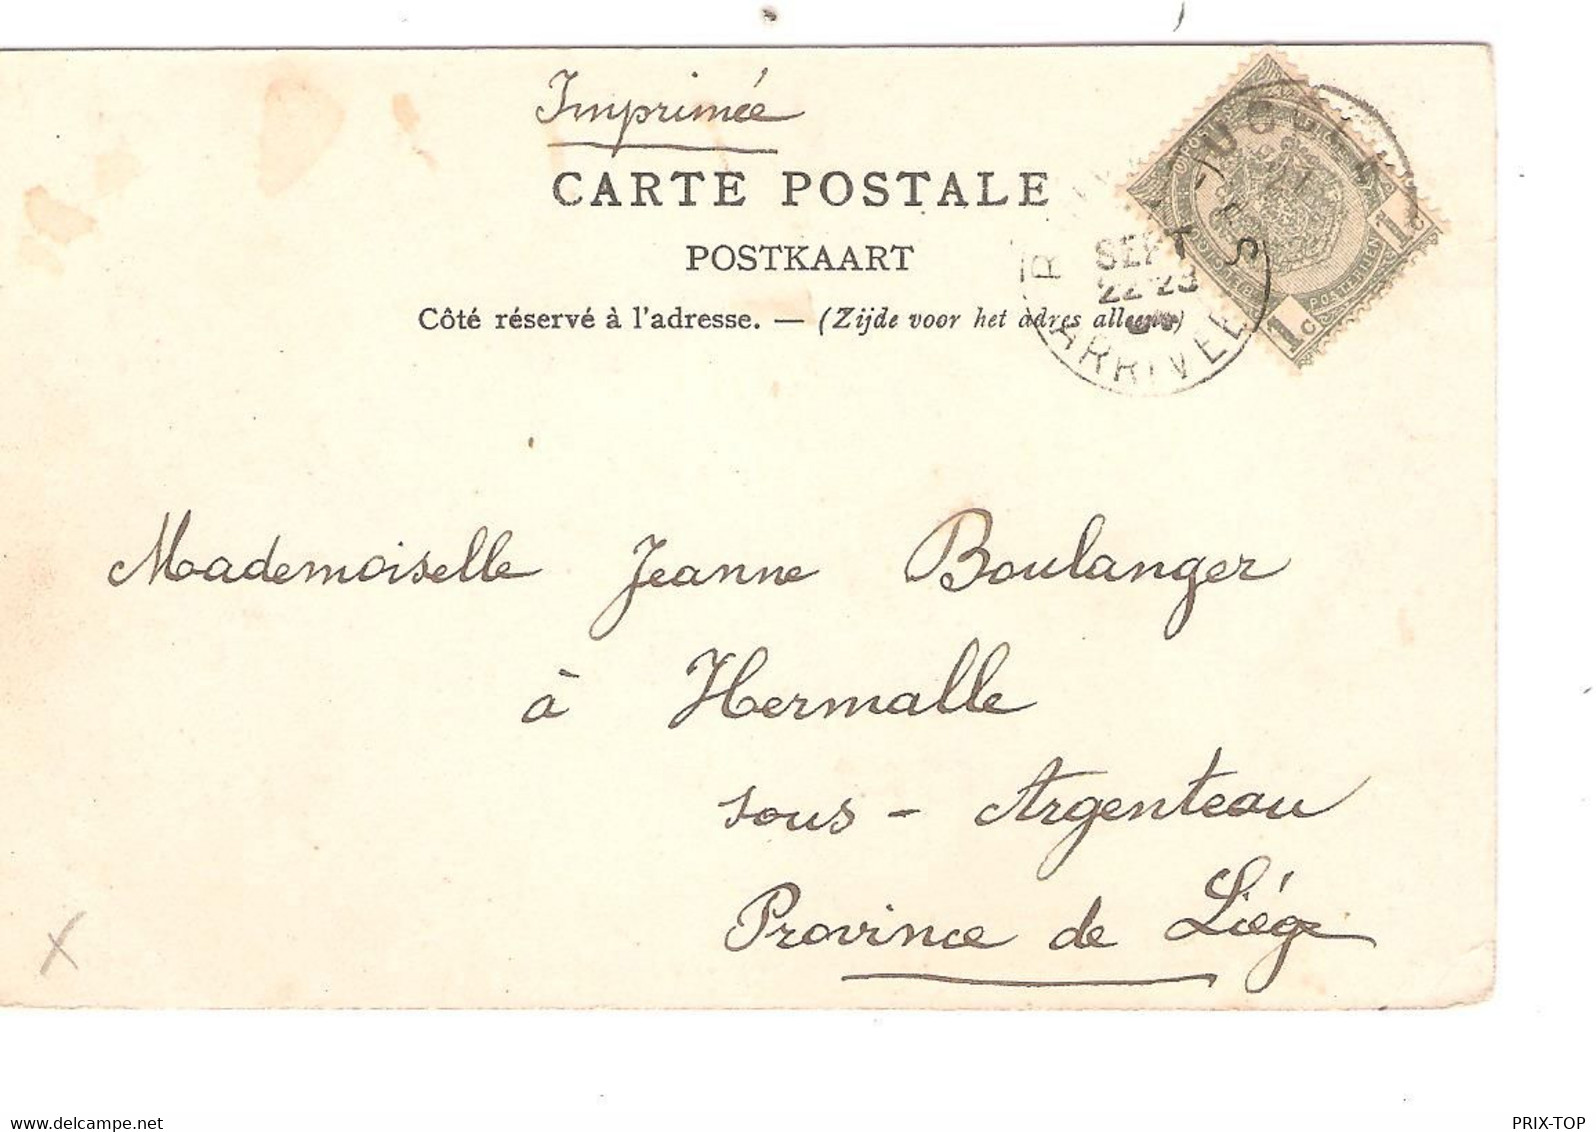 Imprimée
CARTE POSTALE
POSTKAART
Côté réservé à l'adresse. — (Zijde voor het adres alleen)
SEPT
22-23
ARRIVEE
POSTERIJEN
1c
1c
Mademoiselle Jeanne Boulanger
à Hermalle
sous - Argenteau
Province de Liége
www.delcampe.net
PRIX-TOP